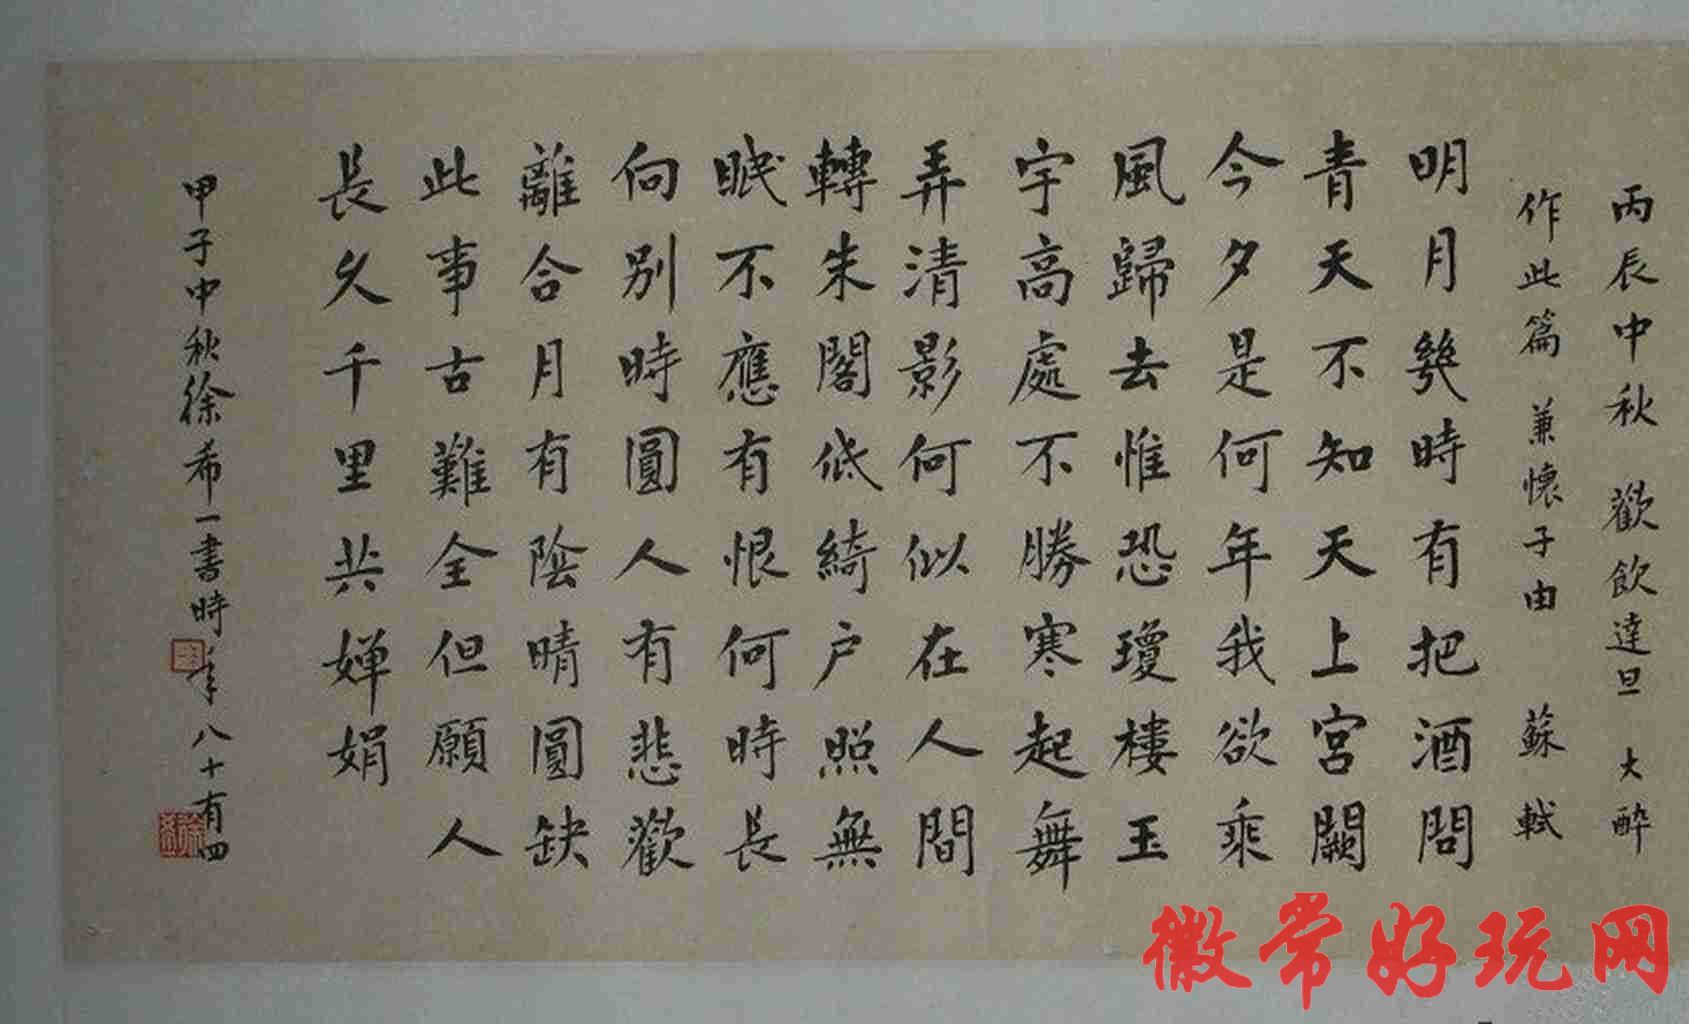 丙辰中秋 歡飲達旦 大醉
作此篇 兼懷子由 蘇軾
明月幾時有把酒問
青天不知天上宮闕
今夕是何年我欲乘
風歸去惟恐瓊樓玉
宇高處不勝寒起舞
弄清影何似在人間
轉朱閣低綺户照無
眠不應有恨何時長
向別時圓人有悲歡
離合月有陰晴圓缺
此事古難全但願人
長久千里共嬋娟
甲子中秋徐希一書時年八十有四
徽常好玩网